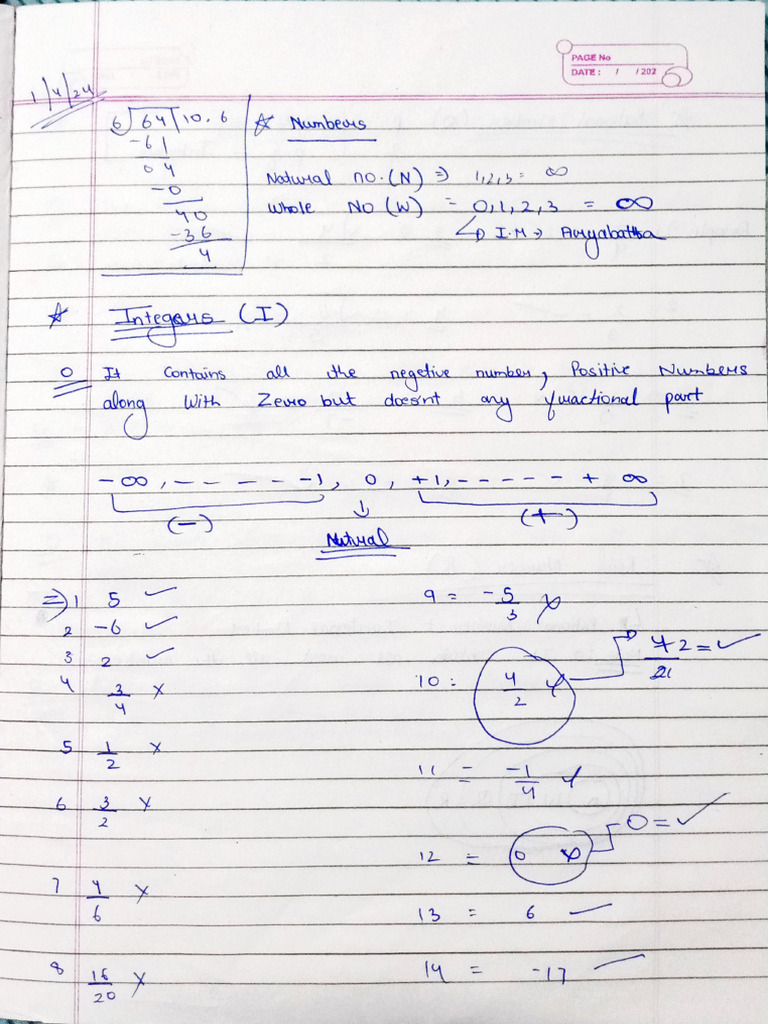 PAGE No
DATE: / /202
1/4/24
6) 64 | 10.6
-61
04
-0
40
-36
4
☆ Numbers
Natural no.(N) ⇒ 1,2,3 = ∞
Whole No (W) = 0,1,2,3 = ∞
↳ I.M → Auryabatta
☆ Integers (I)
0 It Contains all the negetive number, Positive Numbers
along With Zero but doesnt any fractional part
-∞, - - - - -1, 0, +1, - - - - - + ∞
(-) ↓ (+)
Nutural
⇒) 1 5 ✓
2 -6 ✓
3 2 ✓
4 3/4 ×
5 1/2 ×
6 3/2 ×
7 4/6 ×
8 16/20 ×
9 = -5/3 ×
10: 4/2 × → 4 2/21 = ✓
11 = -1/4 ×
12 = 0 × 0 = ✓
13 = 6 ✓
14 = -17 ✓